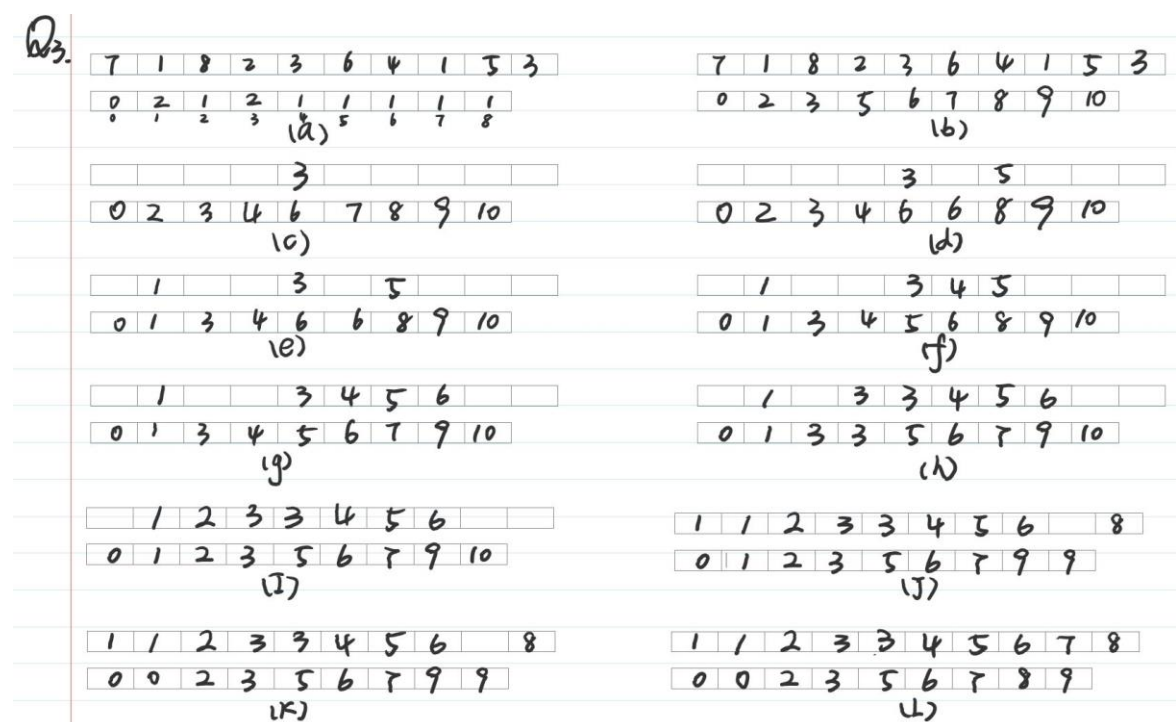 Q3.
7 1 8 2 3 6 4 1 5 3
0 2 1 2 1 1 1 1 1
0 1 2 3 4 5 6 7 8
(a)
7 1 8 2 3 6 4 1 5 3
0 2 3 5 6 7 8 9 10
(b)
3
0 2 3 4 6 7 8 9 10
(c)
3 5
0 2 3 4 6 6 8 9 10
(d)
1 3 5
0 1 3 4 6 6 8 9 10
(e)
1 3 4 5
0 1 3 4 5 6 8 9 10
(f)
1 3 4 5 6
0 1 3 4 5 6 7 9 10
(g)
1 3 3 4 5 6
0 1 3 3 5 6 7 9 10
(h)
1 2 3 3 4 5 6
0 1 2 3 5 6 7 9 10
(I)
1 1 2 3 3 4 5 6 8
0 1 2 3 5 6 7 9 9
(J)
1 1 2 3 3 4 5 6 8
0 0 2 3 5 6 7 9 9
(K)
1 1 2 3 3 4 5 6 7 8
0 0 2 3 5 6 7 8 9
(L)